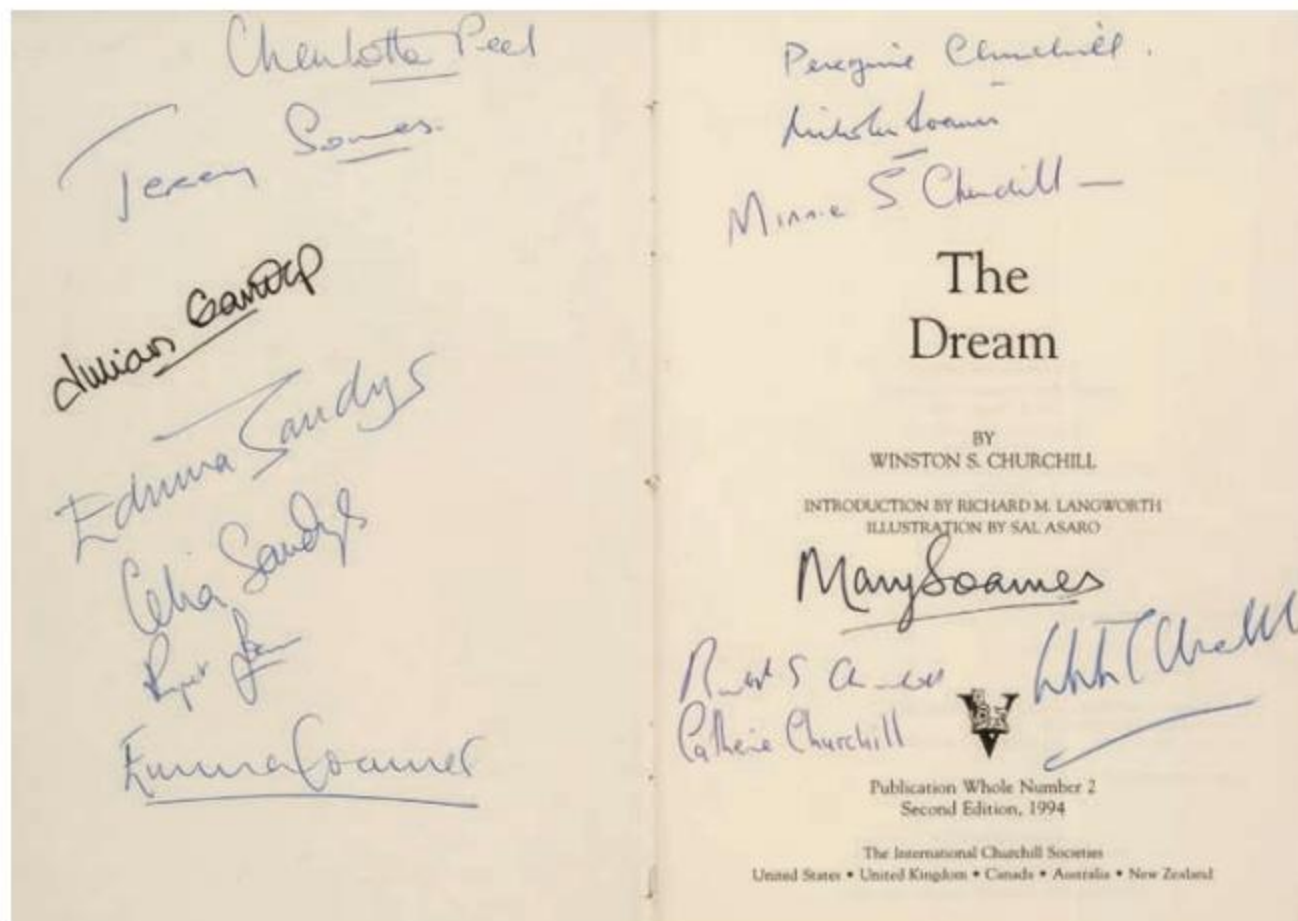 Charlotte Peel
Jeremy Soames.
Julian Sandys
Edwina Sandys
Celia Sandys
Rupert Soames
Emma Soames
Peregrine Churchill.
Nicholas Soames
Minnie S Churchill
The
Dream
BY
WINSTON S. CHURCHILL
INTRODUCTION BY RICHARD M. LANGWORTH
ILLUSTRATION BY SAL ASARO
Mary Soames
Randolph S Churchill
Catherine Churchill
Winston S Churchill
Publication Whole Number 2
Second Edition, 1994
The International Churchill Societies
United States • United Kingdom • Canada • Australia • New Zealand